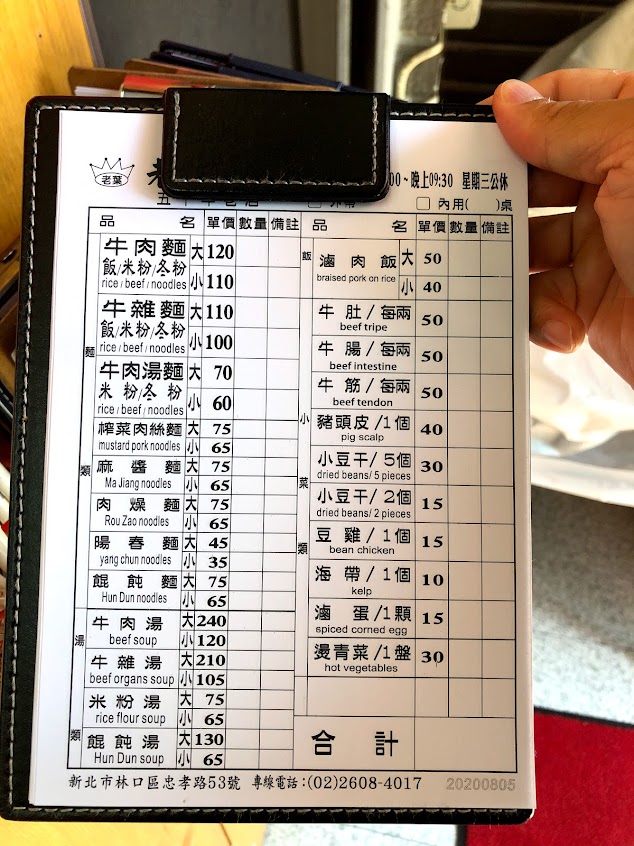 老葉
00～晚上09:30 星期三公休
內用( )桌
品 名 單價 數量 備註
麵類
牛肉麵 大 120
飯/米粉/冬粉
rice / beef / noodles 小 110
牛雜麵 大 110
飯/米粉/冬粉
rice / beef / noodles 小 100
牛肉湯麵 大 70
米粉/冬粉
rice / beef / noodles 小 60
榨菜肉絲麵 大 75
mustard pork noodles 小 65
麻醬麵 大 75
Ma Jiang noodles 小 65
肉燥麵 大 75
Rou Zao noodles 小 65
陽春麵 大 45
yang chun noodles 小 35
餛飩麵 大 75
Hun Dun noodles 小 65
湯類
牛肉湯 大 240
beef soup 小 120
牛雜湯 大 210
beef organs soup 小 105
米粉湯 大 75
rice flour soup 小 65
餛飩湯 大 130
Hun Dun soup 小 65
品 名 單價 數量 備註
飯
滷肉飯 大 50
braised pork on rice 小 40
小菜類
牛肚/每兩 50
beef tripe
牛腸/每兩 50
beef intestine
牛筋/每兩 50
beef tendon
豬頭皮/1個 40
pig scalp
小豆干/5個 30
dried beans/ 5 pieces
小豆干/2個 15
dried beans/ 2 pieces
豆雞/1個 15
bean chicken
海帶/1個 10
kelp
滷蛋/1顆 15
spiced corned egg
燙青菜/1盤 30
hot vegetables
合計
新北市林口區忠孝路53號 專線電話:(02)2608-4017 20200805